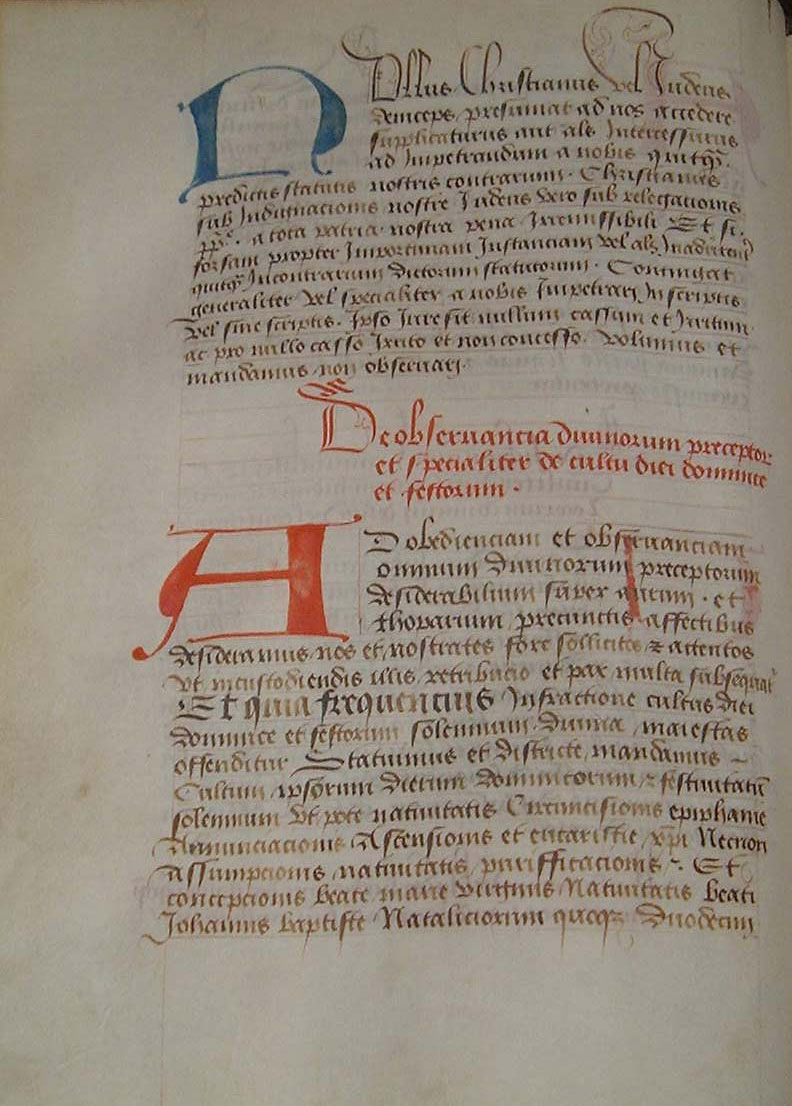 NUllus Christianus vel Iudeus
deinceps presumat ad nos accedere
supplicaturus aut als Intercessurus
ad Impetrandum a nobis quitq̃.
predictis statutis nostris contrarium. Christianus
sub Indignacionis nostre Iudeus vero sub relegacionis
ppe. a tota patria nostra pena Irremissibili Et si.
forsam propter Importunam Instanciam vel als Inaduertent̃
quitq̃ Incontrarium dictorum statutorum. Contingat
generaliter vel specialiter a nobis Impetrari In scriptis
vel sine scriptis. Ipso Iure sit nullum cassum et Irritum
ac pro nullo casso Irrito et non concesso. volumus et
mandamus non observari.
De observancia diuinorum preceptor
et specialiter de cultu diei dominice
et festorum.
AD obedienciam et observanciam
omnium diuinorum preceptorum
desiderabilium super aurum. et
thopazium precunctis affectibus
desideramus nos et nostrates fore sollicitos z attentos
vt incustodiendis illis retribucio et pax multa subsequat̃
Et quia frequencius Infractione cultus diei
dominice et festorum solennium Diuina maiestas
offenditur Statuimus et districte mandamus ~
Cultum ipsorum dierum dominicorum z festiuitatũ
solennium Vt pote natiuitatis Circuncisionis epiphanie
Annunciacionis Ascensionis et eucaristie xp̃i Necnon
Assumpcionis natiuitatis puriffìcacionis z. Et
concepcionis beate marie virginis Natiuitatis beati
Johannis baptiste Nataliciorum quoqz Duodecim